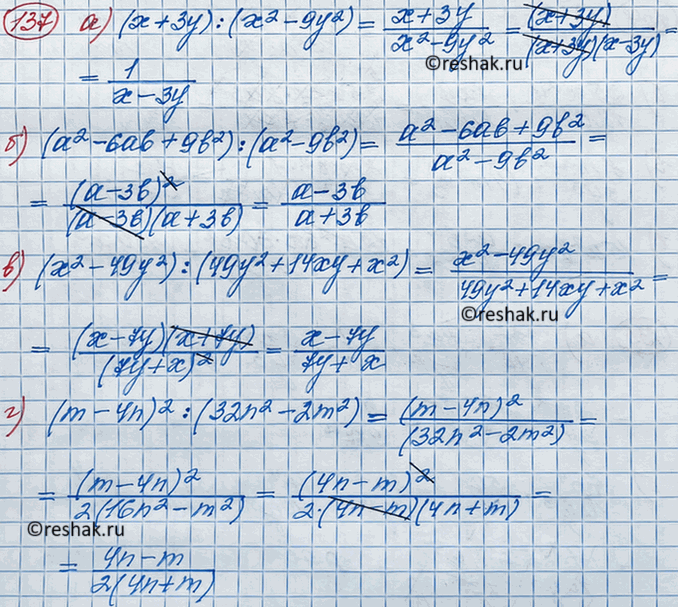 137 а) (x+3y) : (x²-9y²) = (x+3y)/(x²-9y²) = (x+3y)/((x+3y)(x-3y)) =
©reshak.ru
= 1/(x-3y)
б) (a²-6ab+9b²) : (a²-9b²) = (a²-6ab+9b²)/(a²-9b²) =
= (a-3b)²/((a-3b)(a+3b)) = (a-3b)/(a+3b)
в) (x²-49y²) : (49y²+14xy+x²) = (x²-49y²)/(49y²+14xy+x²) =
©reshak.ru
= ((x-7y)(x+7y))/(7y+x)² = (x-7y)/(7y+x)
г) (m-4n)² : (32n²-2m²) = (m-4n)²/(32n²-2m²) =
= (m-4n)²/(2(16n²-m²)) = (4n-m)²/(2·(4n-m)(4n+m)) =
©reshak.ru
= (4n-m)/(2(4n+m))